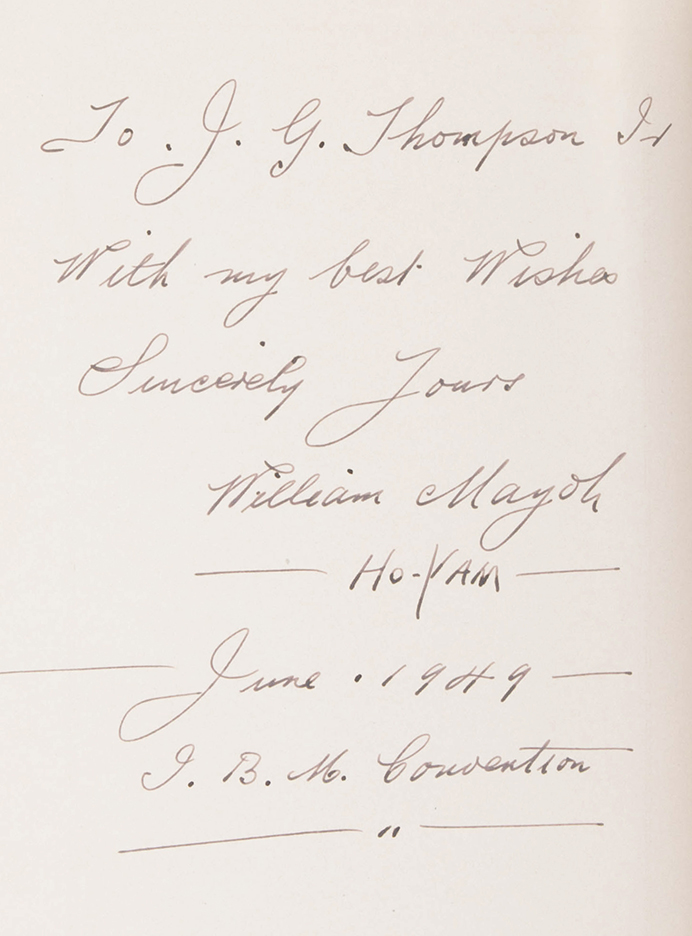 To. J. G. Thompson Jr
With my best Wishes
Sincerely Yours
William Mayoh
— Ho-YAM —
— June . 1949 —
I. B. M. Convention
— " —